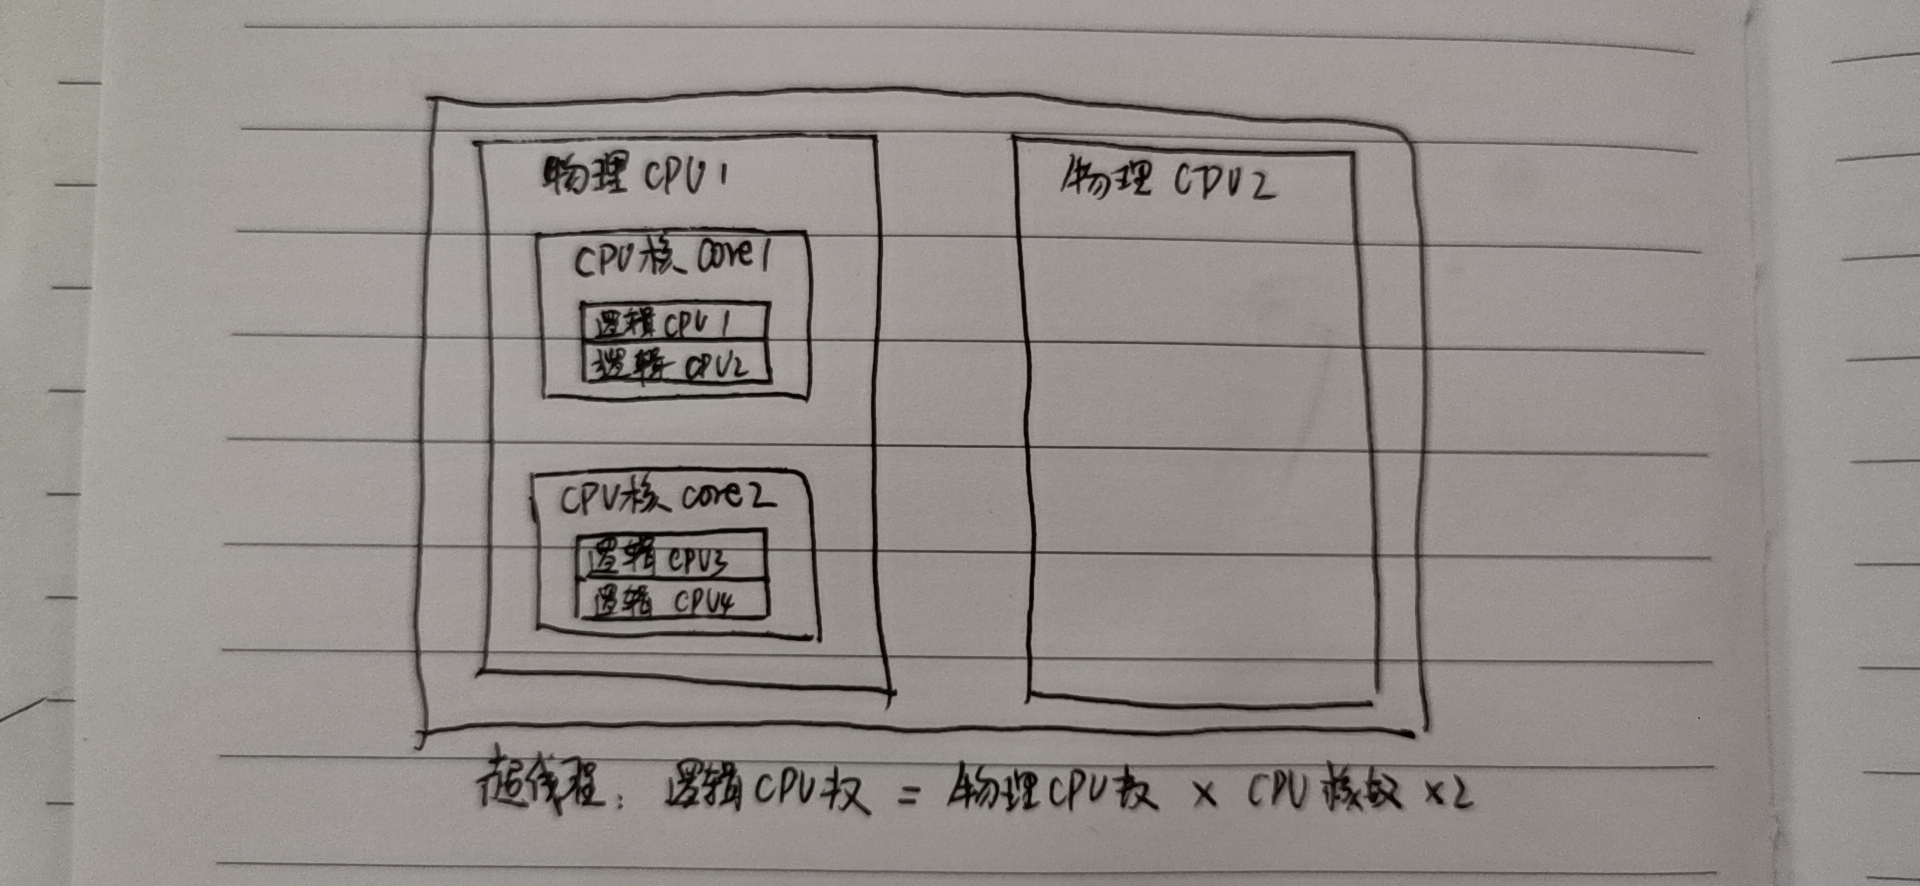 物理 CPU1
CPU核 core1
逻辑 CPU1
逻辑 CPU2
CPU核 core2
逻辑 CPU3
逻辑 CPU4
物理 CPU2
超线程: 逻辑CPU数 = 物理CPU数 × CPU核数 ×2